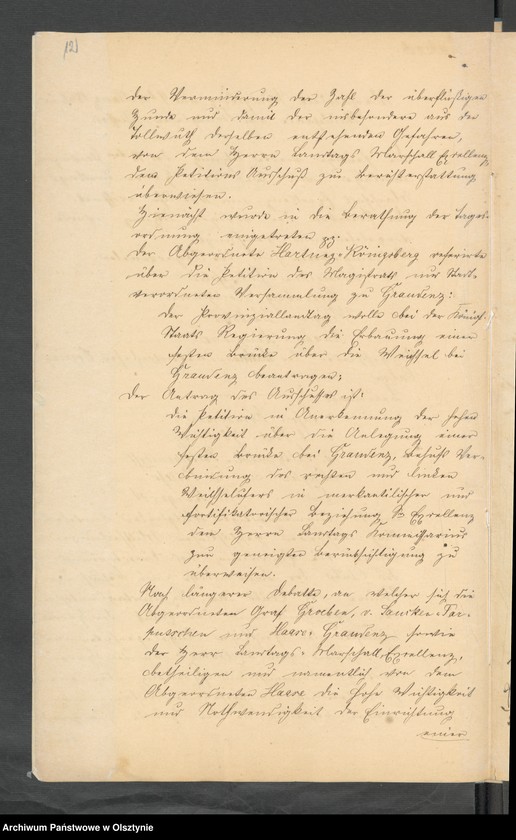 121
der Verminderung der Zahl der überflüßigen
Hunde und damit der insbesondere aus der
Tollwuth derselben entstehenden Gefahren,
von dem Herrn Landtags Marschall Excellenz
dem Petitions Ausschuß zur Berichterstattung
überwiesen.
Hienächst wurde in die Berathung der Tages-
ordnung eingetreten pp.
Der Abgeordnete Hartung-Königsberg referirte
über die Petition des Magistrats und Stadt-
verordneten Versammlung zu Graudenz:
der Provinziallandtag wolle bei der Königl.
Staats Regierung die Erbauung einer
festen Brücke über die Weichsel bei
Graudenz beantragen;
Der Antrag des Ausschusses ist:
die Petition in Anerkennung der hohen
Wichtigkeit über die Anlegung einer
festen Brücke bei Graudenz, behufs Ver-
bindung des rechten und linken
Weichselufers in merkantilischer und
fortifikatorischer Beziehung Sr Excellenz
dem Herrn Landtags Kommissarius
zur geneigten Berücksichtigung zu
überweisen.
Nach längerer Debatte, an welcher sich die
Abgeordneten Graf Groeben, v. Saucken-Tar-
putschen und Haase-Graudenz sowie
der Herr Landtags-Marschall, Excellenz,
betheiligen und namentlich von dem
Abgeordneten Haase die hohe Wichtigkeit
und Nothwendigkeit der Einrichtung
einer
Archiwum Państwowe w Olsztynie